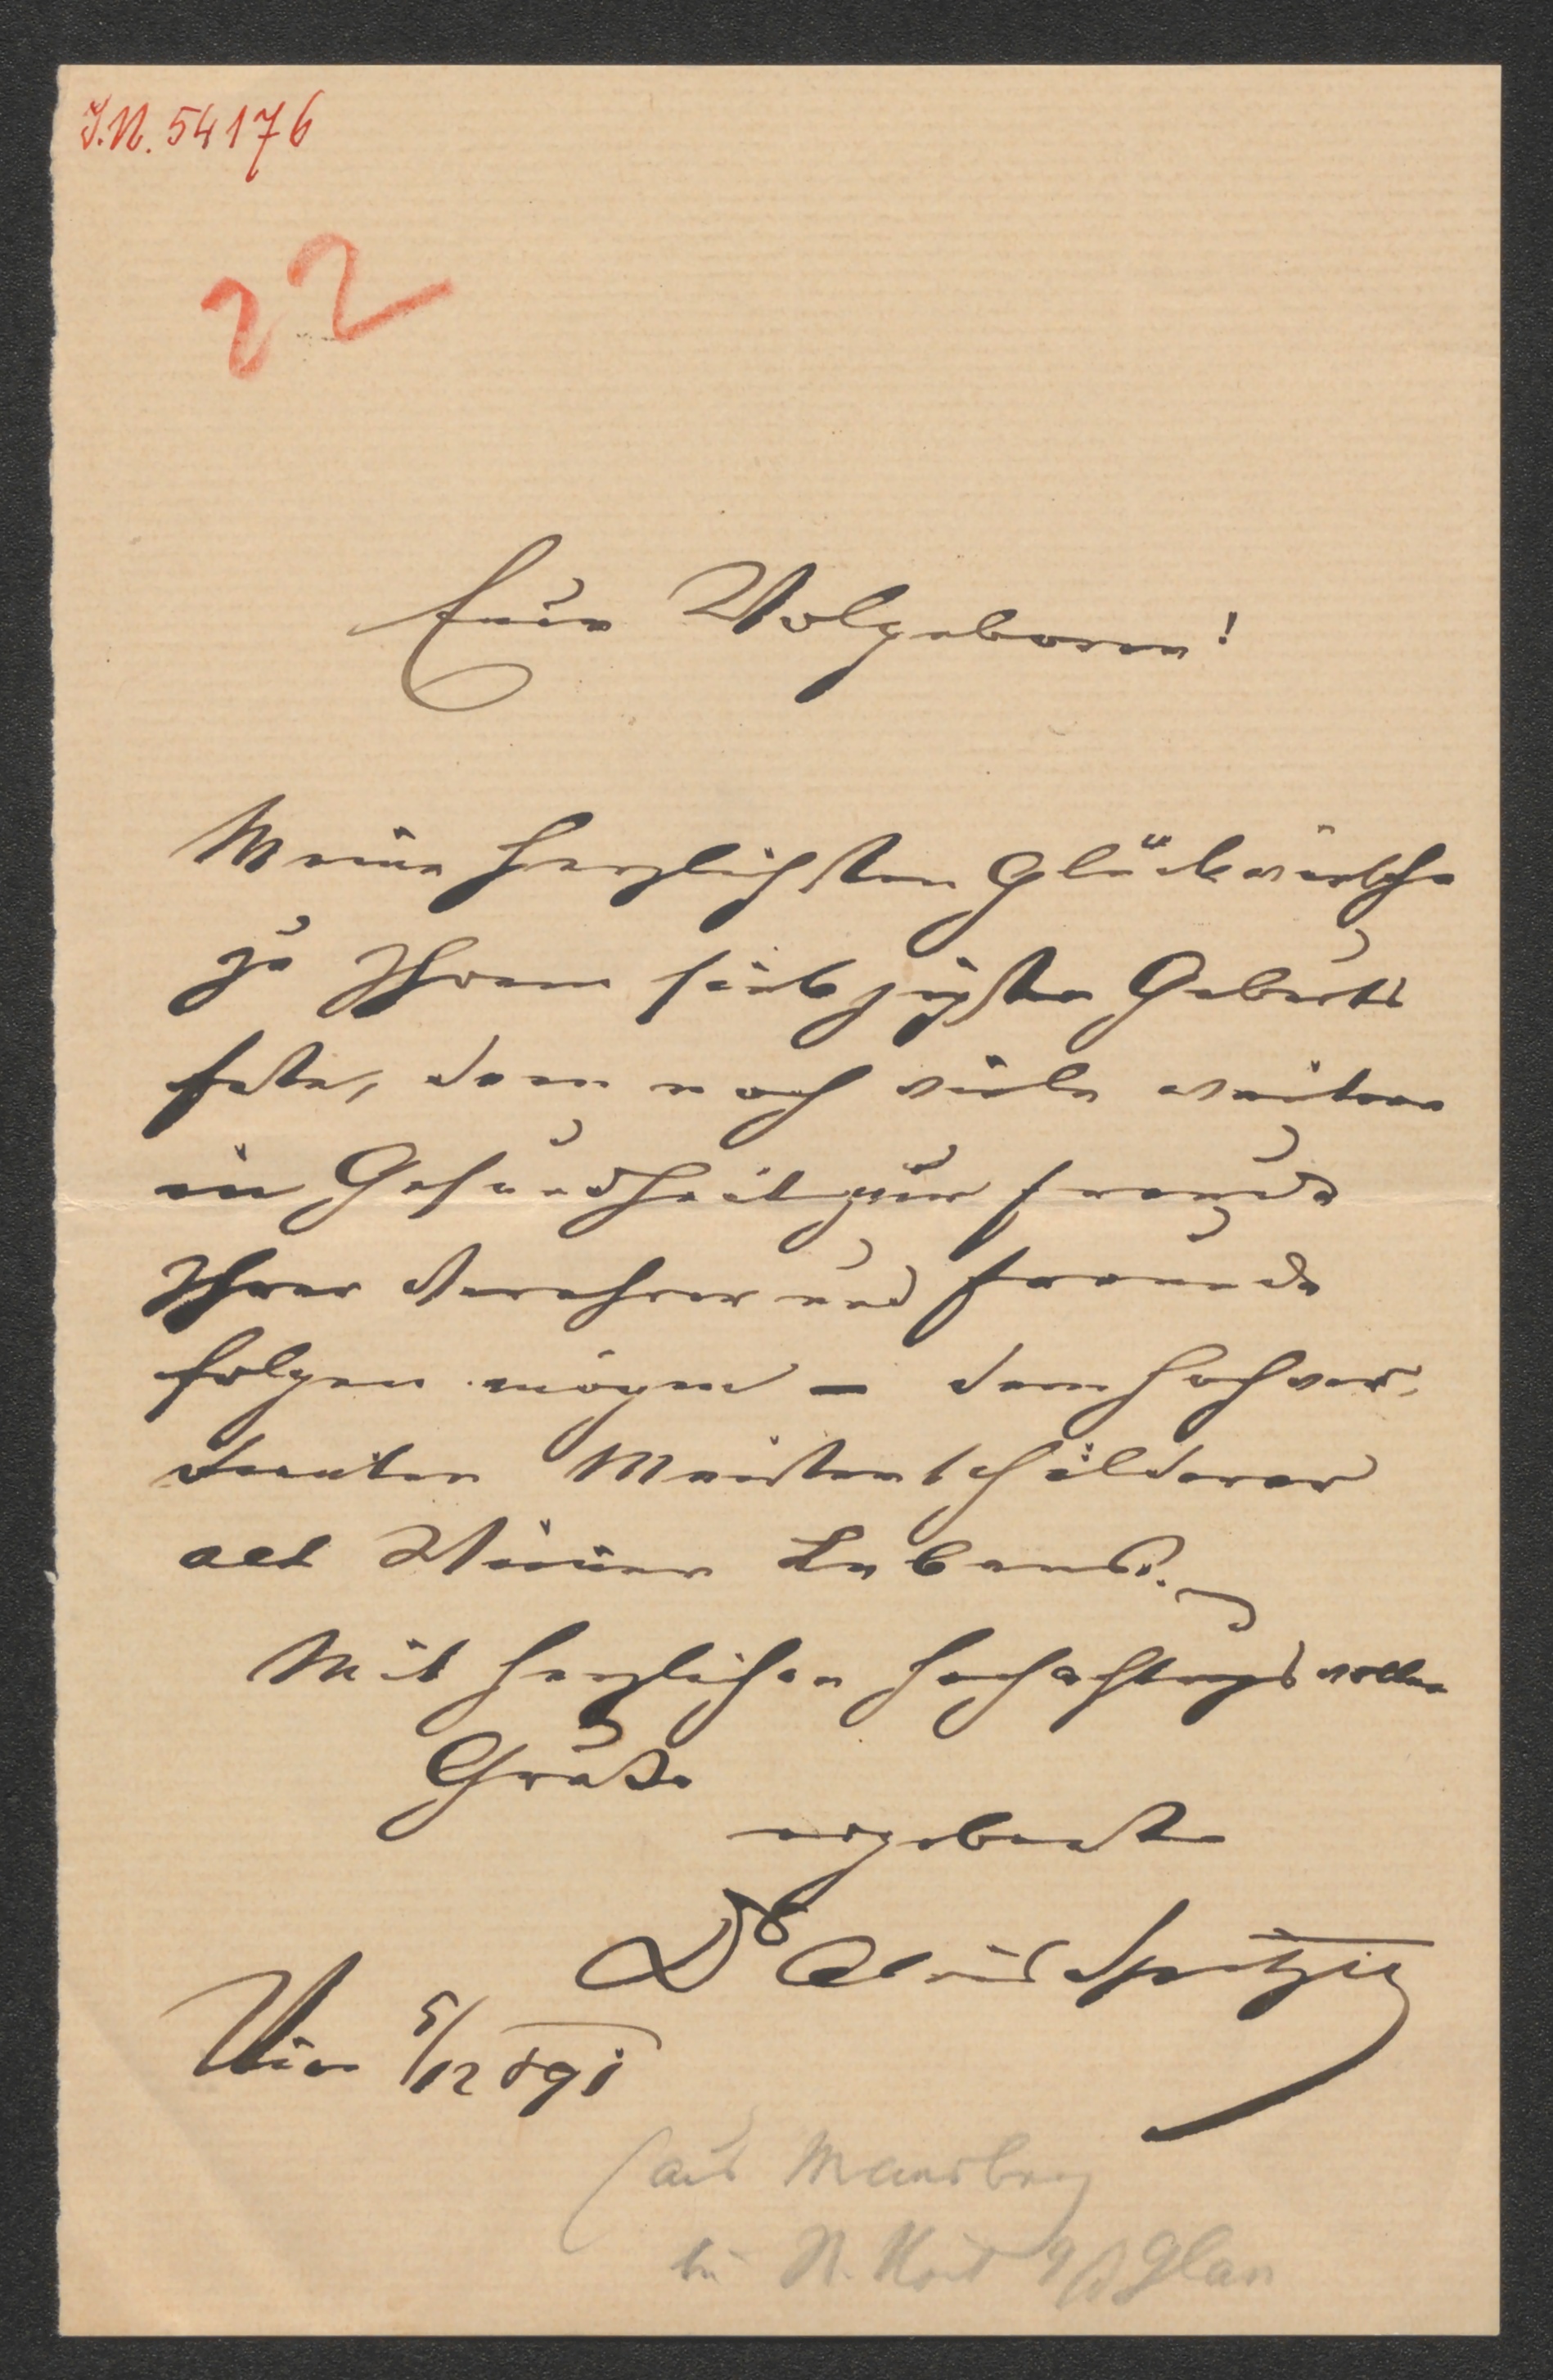 J.N. 54176
22
Euer Wolgeboren!
Meine herzlichsten Glückwünsche
zu Ihrem siebzigsten Geburts
feste, dem noch viele weitere
in Gesundheit zur Freude
Ihrer Verehrer und Freunde
folgen mögen – dem hochver-
dienten Meisterschilderer
alt Wiener Lebens.
Mit herzlichen hochachtungsvollen
Gruße
ergebenste
Dr Alois Spitzer
Wien 5/12 891
(aus
bei Glan